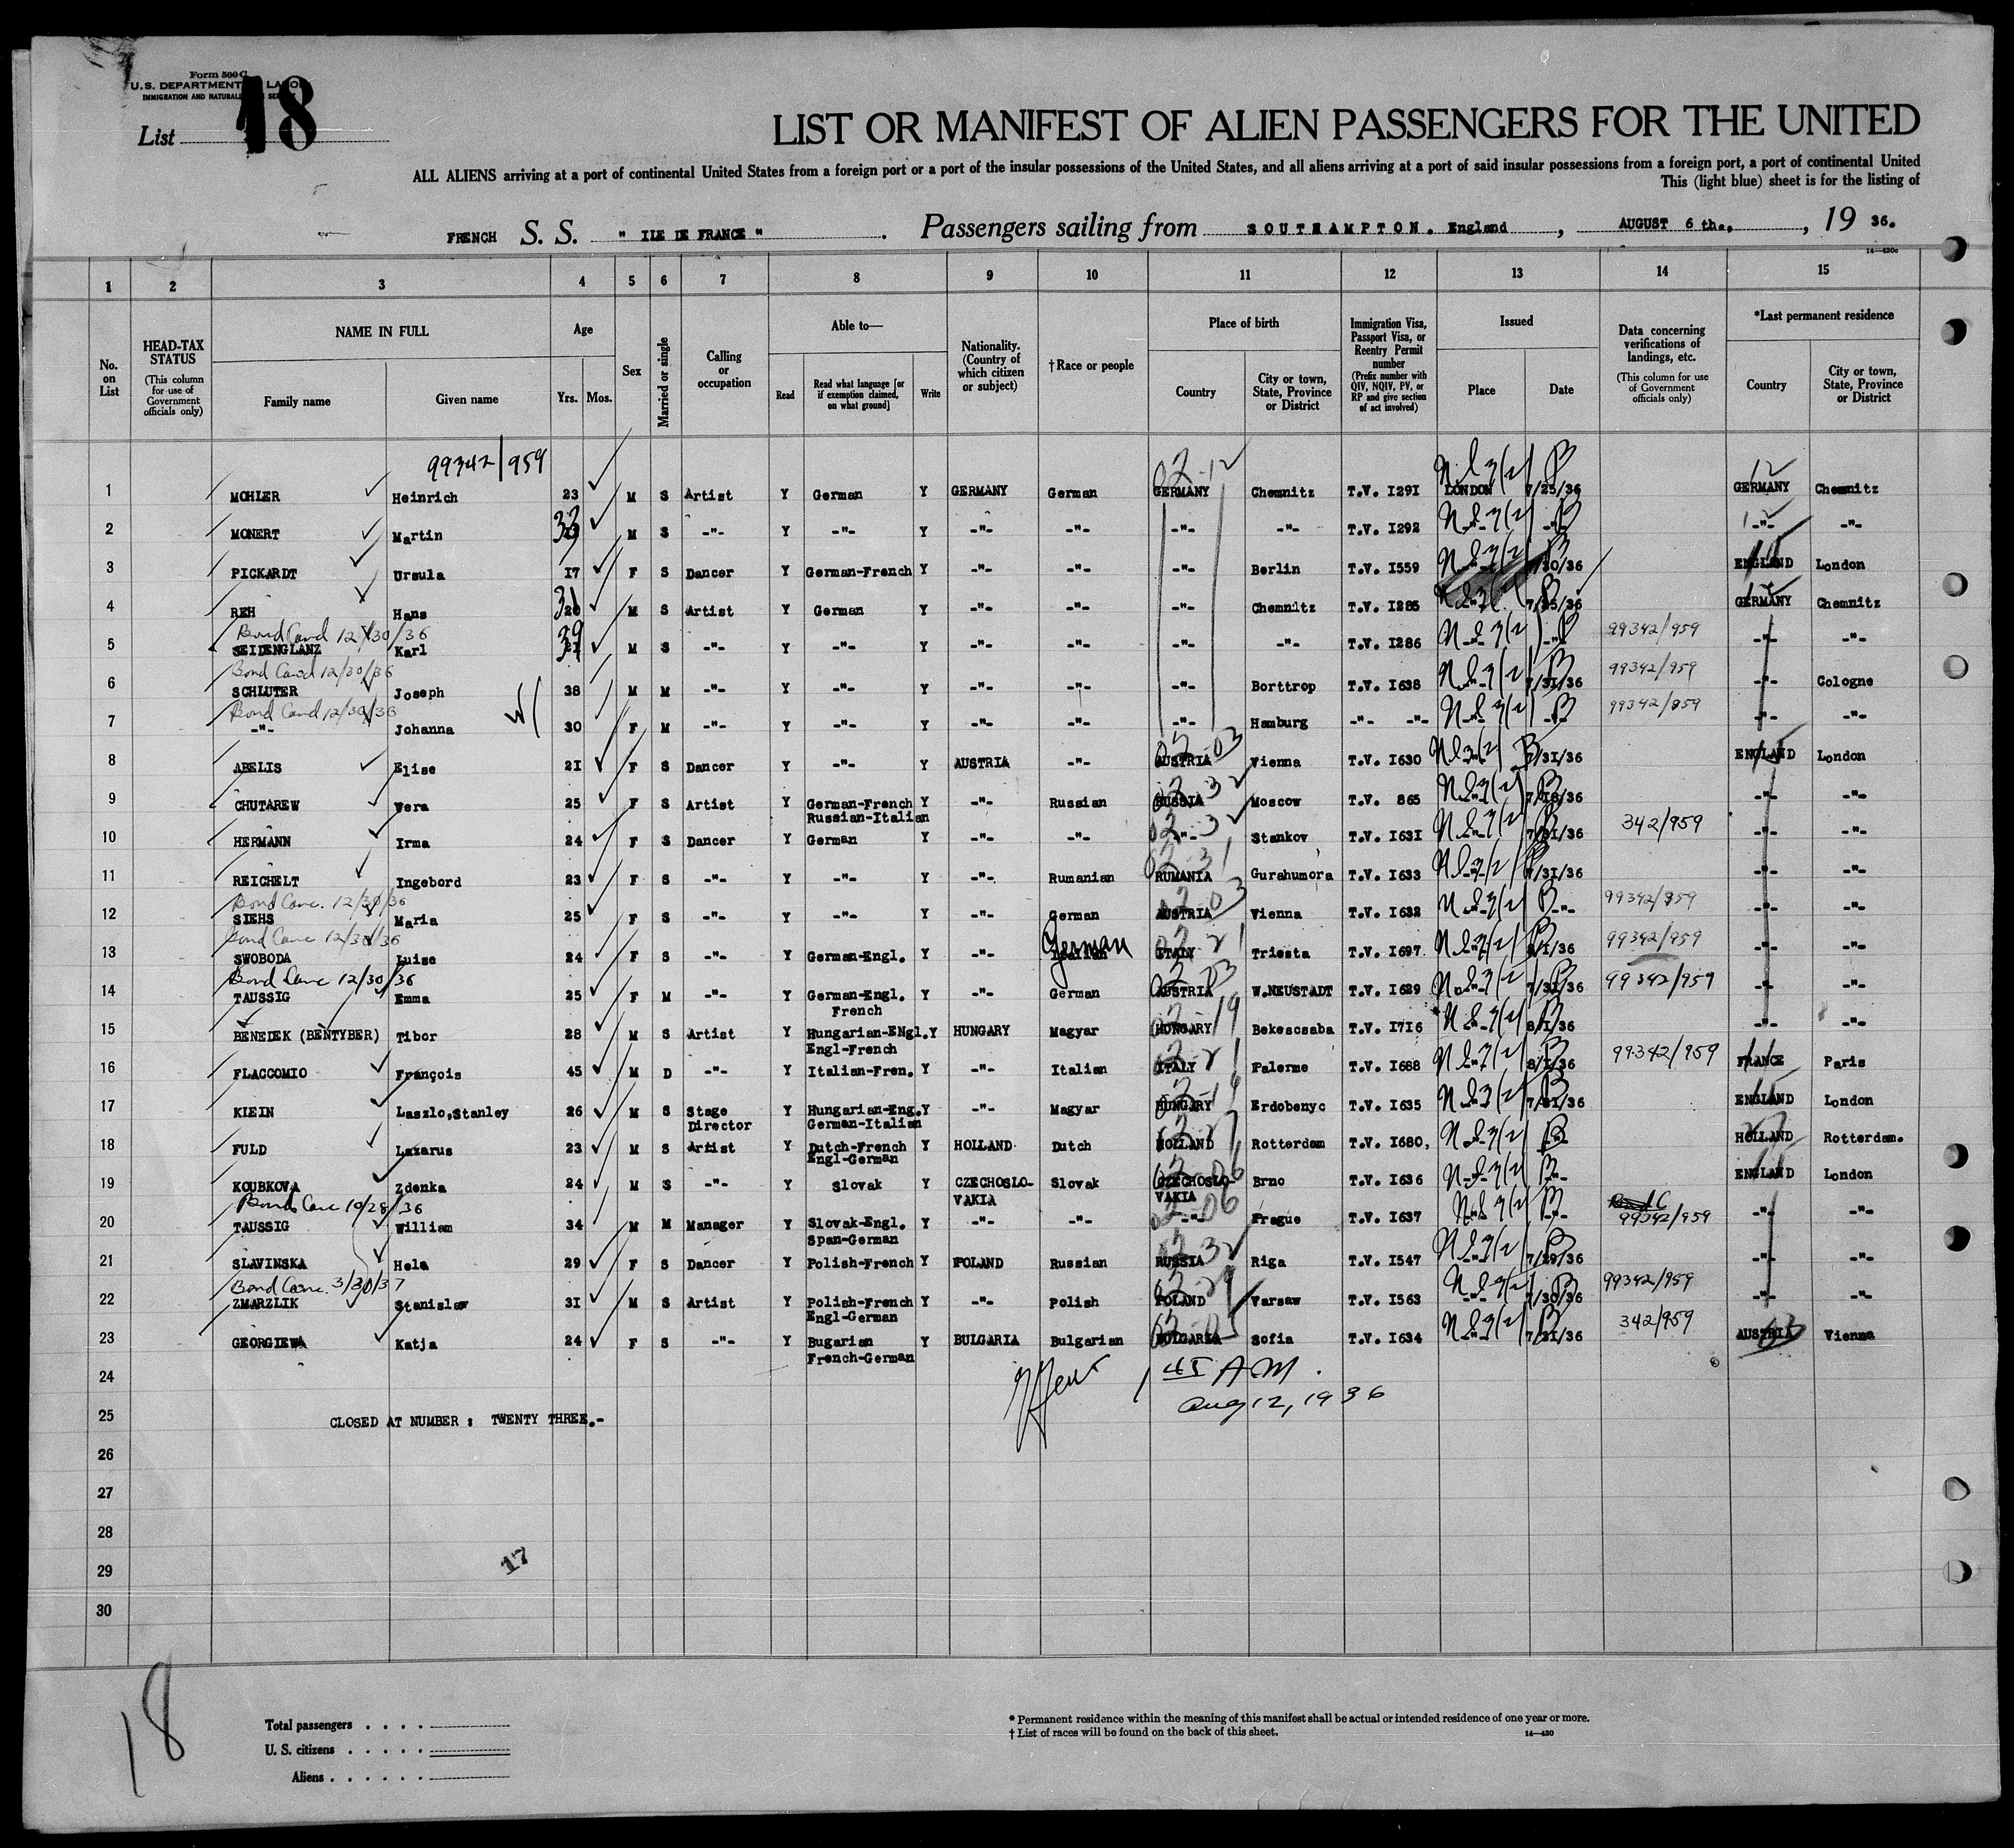 Form 500 C
U.S. DEPARTMENT LABOR
IMMIGRATION AND NATURAL SERVICE
List 18
LIST OR MANIFEST OF ALIEN PASSENGERS FOR THE UNITED
ALL ALIENS arriving at a port of continental United States from a foreign port or a port of the insular possessions of the United States, and all aliens arriving at a port of said insular possessions from a foreign port, a port of continental United
This (light blue) sheet is for the listing of
FRENCH S. S. " ILE DE FRANCE " . Passengers sailing from SOUTHAMPTON. England , AUGUST 6 th., , 19 36.
14—430c
1 2 3 4 5 6 7 8 9 10 11 12 13 14 15
No. on List
HEAD-TAX STATUS (This column for use of Government officials only)
NAME IN FULL Family name Given name
Age Yrs. Mos.
Sex
Married or single
Calling or occupation
Able to— Read Read what language [or if exemption claimed, on what ground] Write
Nationality. (Country of which citizen or subject)
† Race or people
Place of birth Country City or town, State, Province or District
Immigration Visa, Passport Visa, or Reentry Permit number (Prefix number with QIV, NQIV, PV, or RP and give section of act involved)
Issued Place Date
Data concerning verifications of landings, etc. (This column for use of Government officials only)
*Last permanent residence Country City or town, State, Province or District
99342/959
1 MOHLER Heinrich 23 M S Artist Y German Y GERMANY German GERMANY Chemnitz T.V. I291 LONDON 7/25/36 GERMANY Chemnitz
2 MONERT Martin 33 M S -"- Y -"- Y -"- -"- -"- -"- T.V. I292 -"- -"- -"- -"-
3 PICKARDT Ursula 17 F S Dancer Y German-French Y -"- -"- -"- Berlin T.V. I559 -"- 7/30/36 ENGLAND London
4 REH Hans 31 M S Artist Y German Y -"- -"- -"- Chemnitz T.V. I285 -"- 7/25/36 GERMANY Chemnitz
Bond Cancd 12/30/36
5 SEIDENGLANZ Karl 39 M S -"- Y -"- Y -"- -"- -"- -"- T.V. I286 -"- -"- 99342/959 -"- -"-
Bond Cancd 12/30/36
6 SCHLUTER Joseph 38 M M -"- Y -"- Y -"- -"- -"- Borttrop T.V. I638 -"- 7/31/36 99342/959 -"- Cologne
Bond Cancd 12/30/36
7 -"- Johanna W/ 30 F M -"- Y -"- Y -"- -"- -"- Hamburg -"- -"- -"- -"- 99342/959 -"- -"-
8 ABELIS Elise 21 F S Dancer Y -"- Y AUSTRIA -"- AUSTRIA Vienna T.V. I630 7/31/36 ENGLAND London
9 CHUTAREW Vera 25 F S Artist Y German-French Y -"- Russian RUSSIA Moscow T.V. 865 -"- 7/18/36 -"- -"-
Russian-Italian
10 HERMANN Irma 24 F S Dancer Y German Y -"- -"- -"- Stankov T.V. I631 -"- 7/31/36 342/959 -"- -"-
11 REICHELT Ingebord 23 F S -"- Y -"- Y -"- Rumanian RUMANIA Gurahumora T.V. I633 -"- 7/31/36 -"- -"-
Bond Canc. 12/30/36
12 SIEHS Maria 25 F S -"- Y -"- Y -"- German AUSTRIA Vienna T.V. I632 -"- -"- 99342/959 -"- -"-
Bond Canc 12/30/36
13 SWOBODA Luise 24 F S -"- Y German-Engl. Y -"- German ITALY Triesta T.V. I697 -"- 8/1/36 99342/959 -"- -"-
Bond Canc 12/30/36
14 TAUSSIG Emma 25 F M -"- Y German-Engl. Y -"- German AUSTRIA W.NEUSTADT T.V. I629 -"- 7/31/36 99342/959 -"- -"-
French
15 BENEDEK (BENTYBER) Tibor 28 M S Artist Y Hungarian-ENgl. Y HUNGARY Magyar HUNGARY Bekescsaba T.V. I716 -"- 8/1/36 -"- -"-
Engl-French
16 FLACCOMIO François 45 M D -"- Y Italian-Fren. Y -"- Italian ITALY Palerme T.V. I688 -"- 8/1/36 99342/959 FRANCE Paris
17 KLEIN Laszlo,Stanley 26 M S Stage Y Hungarian-Eng. Y -"- Magyar HUNGARY Erdobenyc T.V. I635 -"- 7/31/36 ENGLAND London
Director German-Italian
18 FULD Lazarus 23 M S Artist Y Dutch-French Y HOLLAND Dutch HOLLAND Rotterdam T.V. I680, -"- -"- HOLLAND Rotterdam.
Engl-German
19 KOUBKOVA Zdenka 24 M S -"- Y Slovak Y CZECHOSLO- Slovak CZECHOSLO- Brno T.V. I636 -"- -"- ENGLAND London
VAKIA VAKIA
Bond Canc 10/28/36
20 TAUSSIG William 34 M M Manager Y Slovak-Engl. Y -"- -"- -"- Prague T.V. I637 -"- -"- 99342/959 -"- -"-
Span-German
21 SLAVINSKA Hela 29 F S Dancer Y Polish-French Y POLAND Russian RUSSIA Riga T.V. I547 -"- 7/29/36 -"- -"-
Bond Canc. 3/30/37
22 ZMARZLIK Stanislaw 31 M S Artist Y Polish-French Y -"- Polish POLAND Varsaw T.V. I563 -"- 7/30/36 99342/959 -"- -"-
Engl-German
23 GEORGIEWA Katja 24 F S -"- Y Bugarian Y BULGARIA Bulgarian BULGARIA Sofia T.V. I634 -"- 7/31/36 342/959 AUSTRIA Vienna
French-German
24
AM.
Aug 12, 1936
25 CLOSED AT NUMBER : TWENTY THREE.-
26
27
28
29
17
30
18
Total passengers
U. S. citizens
Aliens
* Permanent residence within the meaning of this manifest shall be actual or intended residence of one year or more.
† List of races will be found on the back of this sheet.
14—430